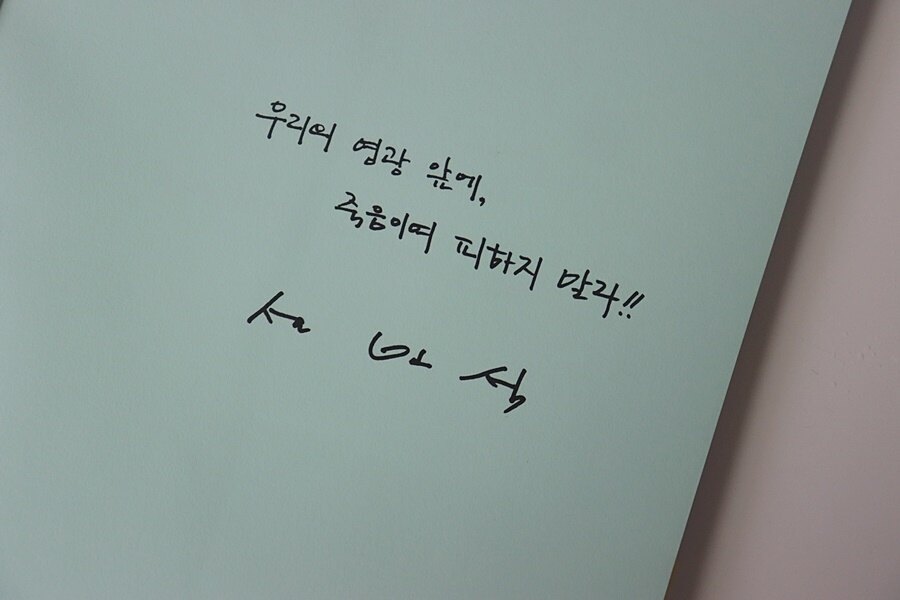 우리의 영광 앞에,
죽음이여 피하지 말라!!